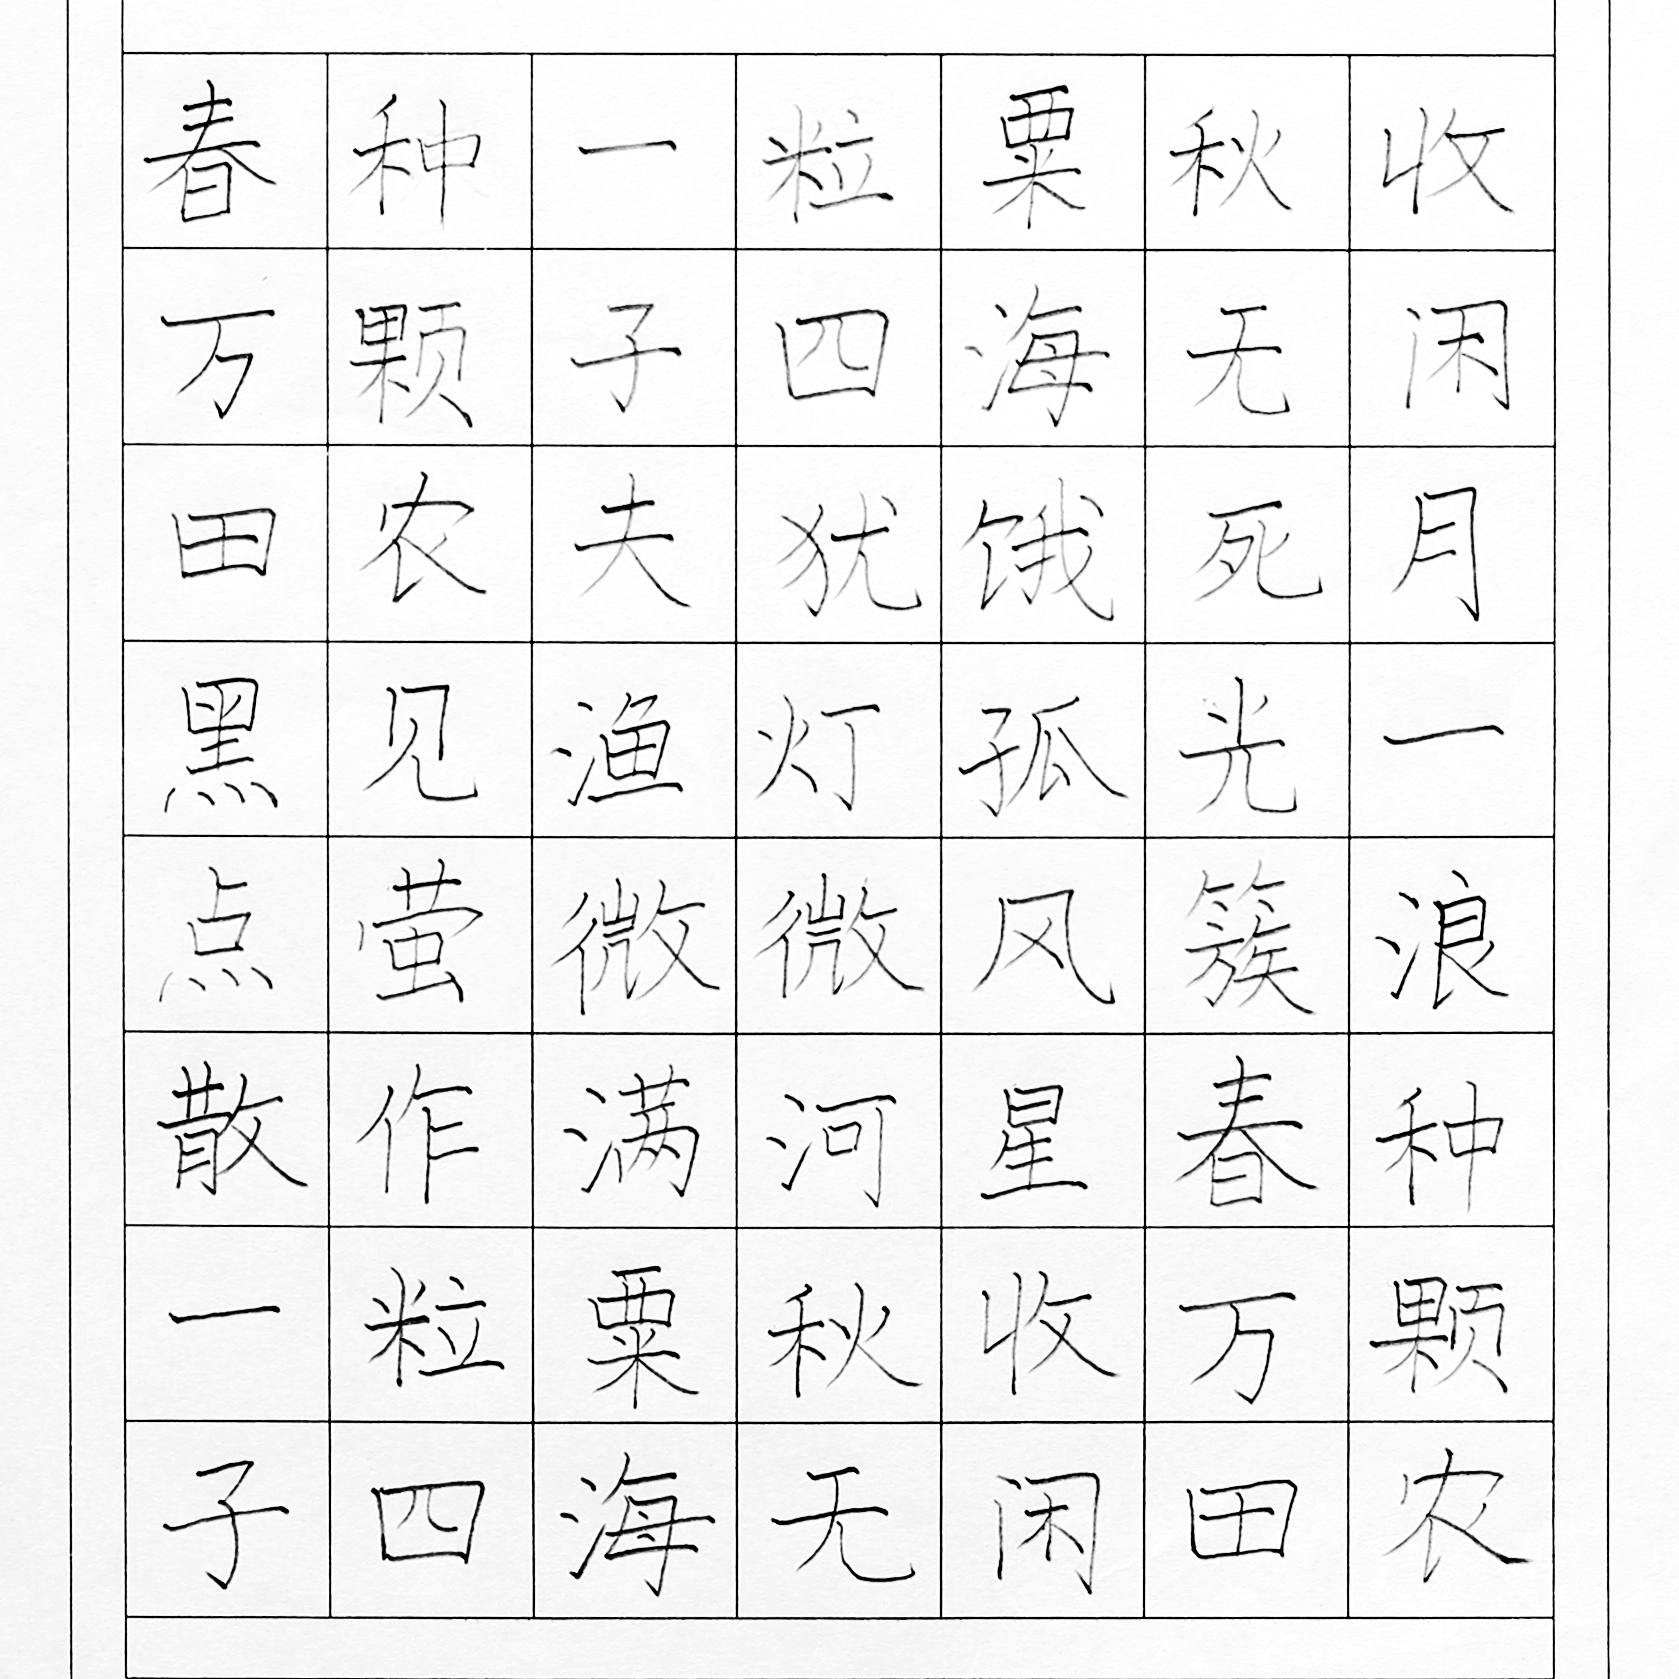 春种一粒粟秋收
万颗子四海无闲
田农夫犹饿死月
黑见渔灯孤光一
点萤微微风簇浪
散作满河星春种
一粒粟秋收万颗
子四海无闲田农